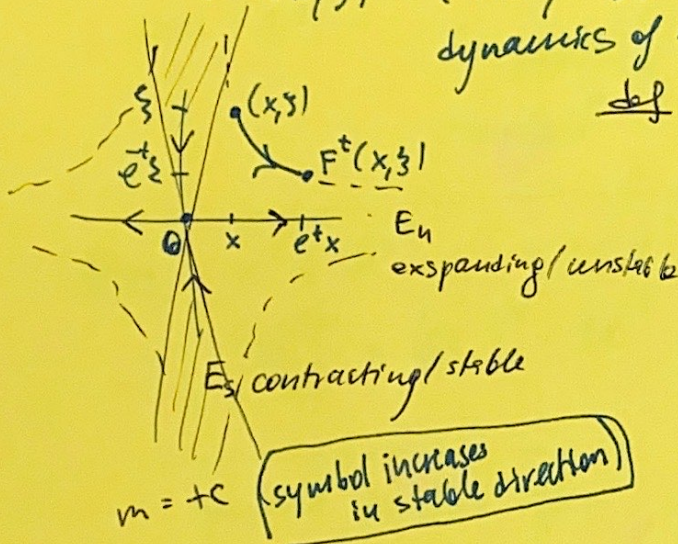 dynamics of
def
ξ
(x,ξ)
e⁻ᵗξ
Fᵗ(x,ξ)
0
x
eᵗx
Eᵤ
exspanding/unstab
Eₛ contracting/stable
m = +C
(symbol increases
in stable direction)